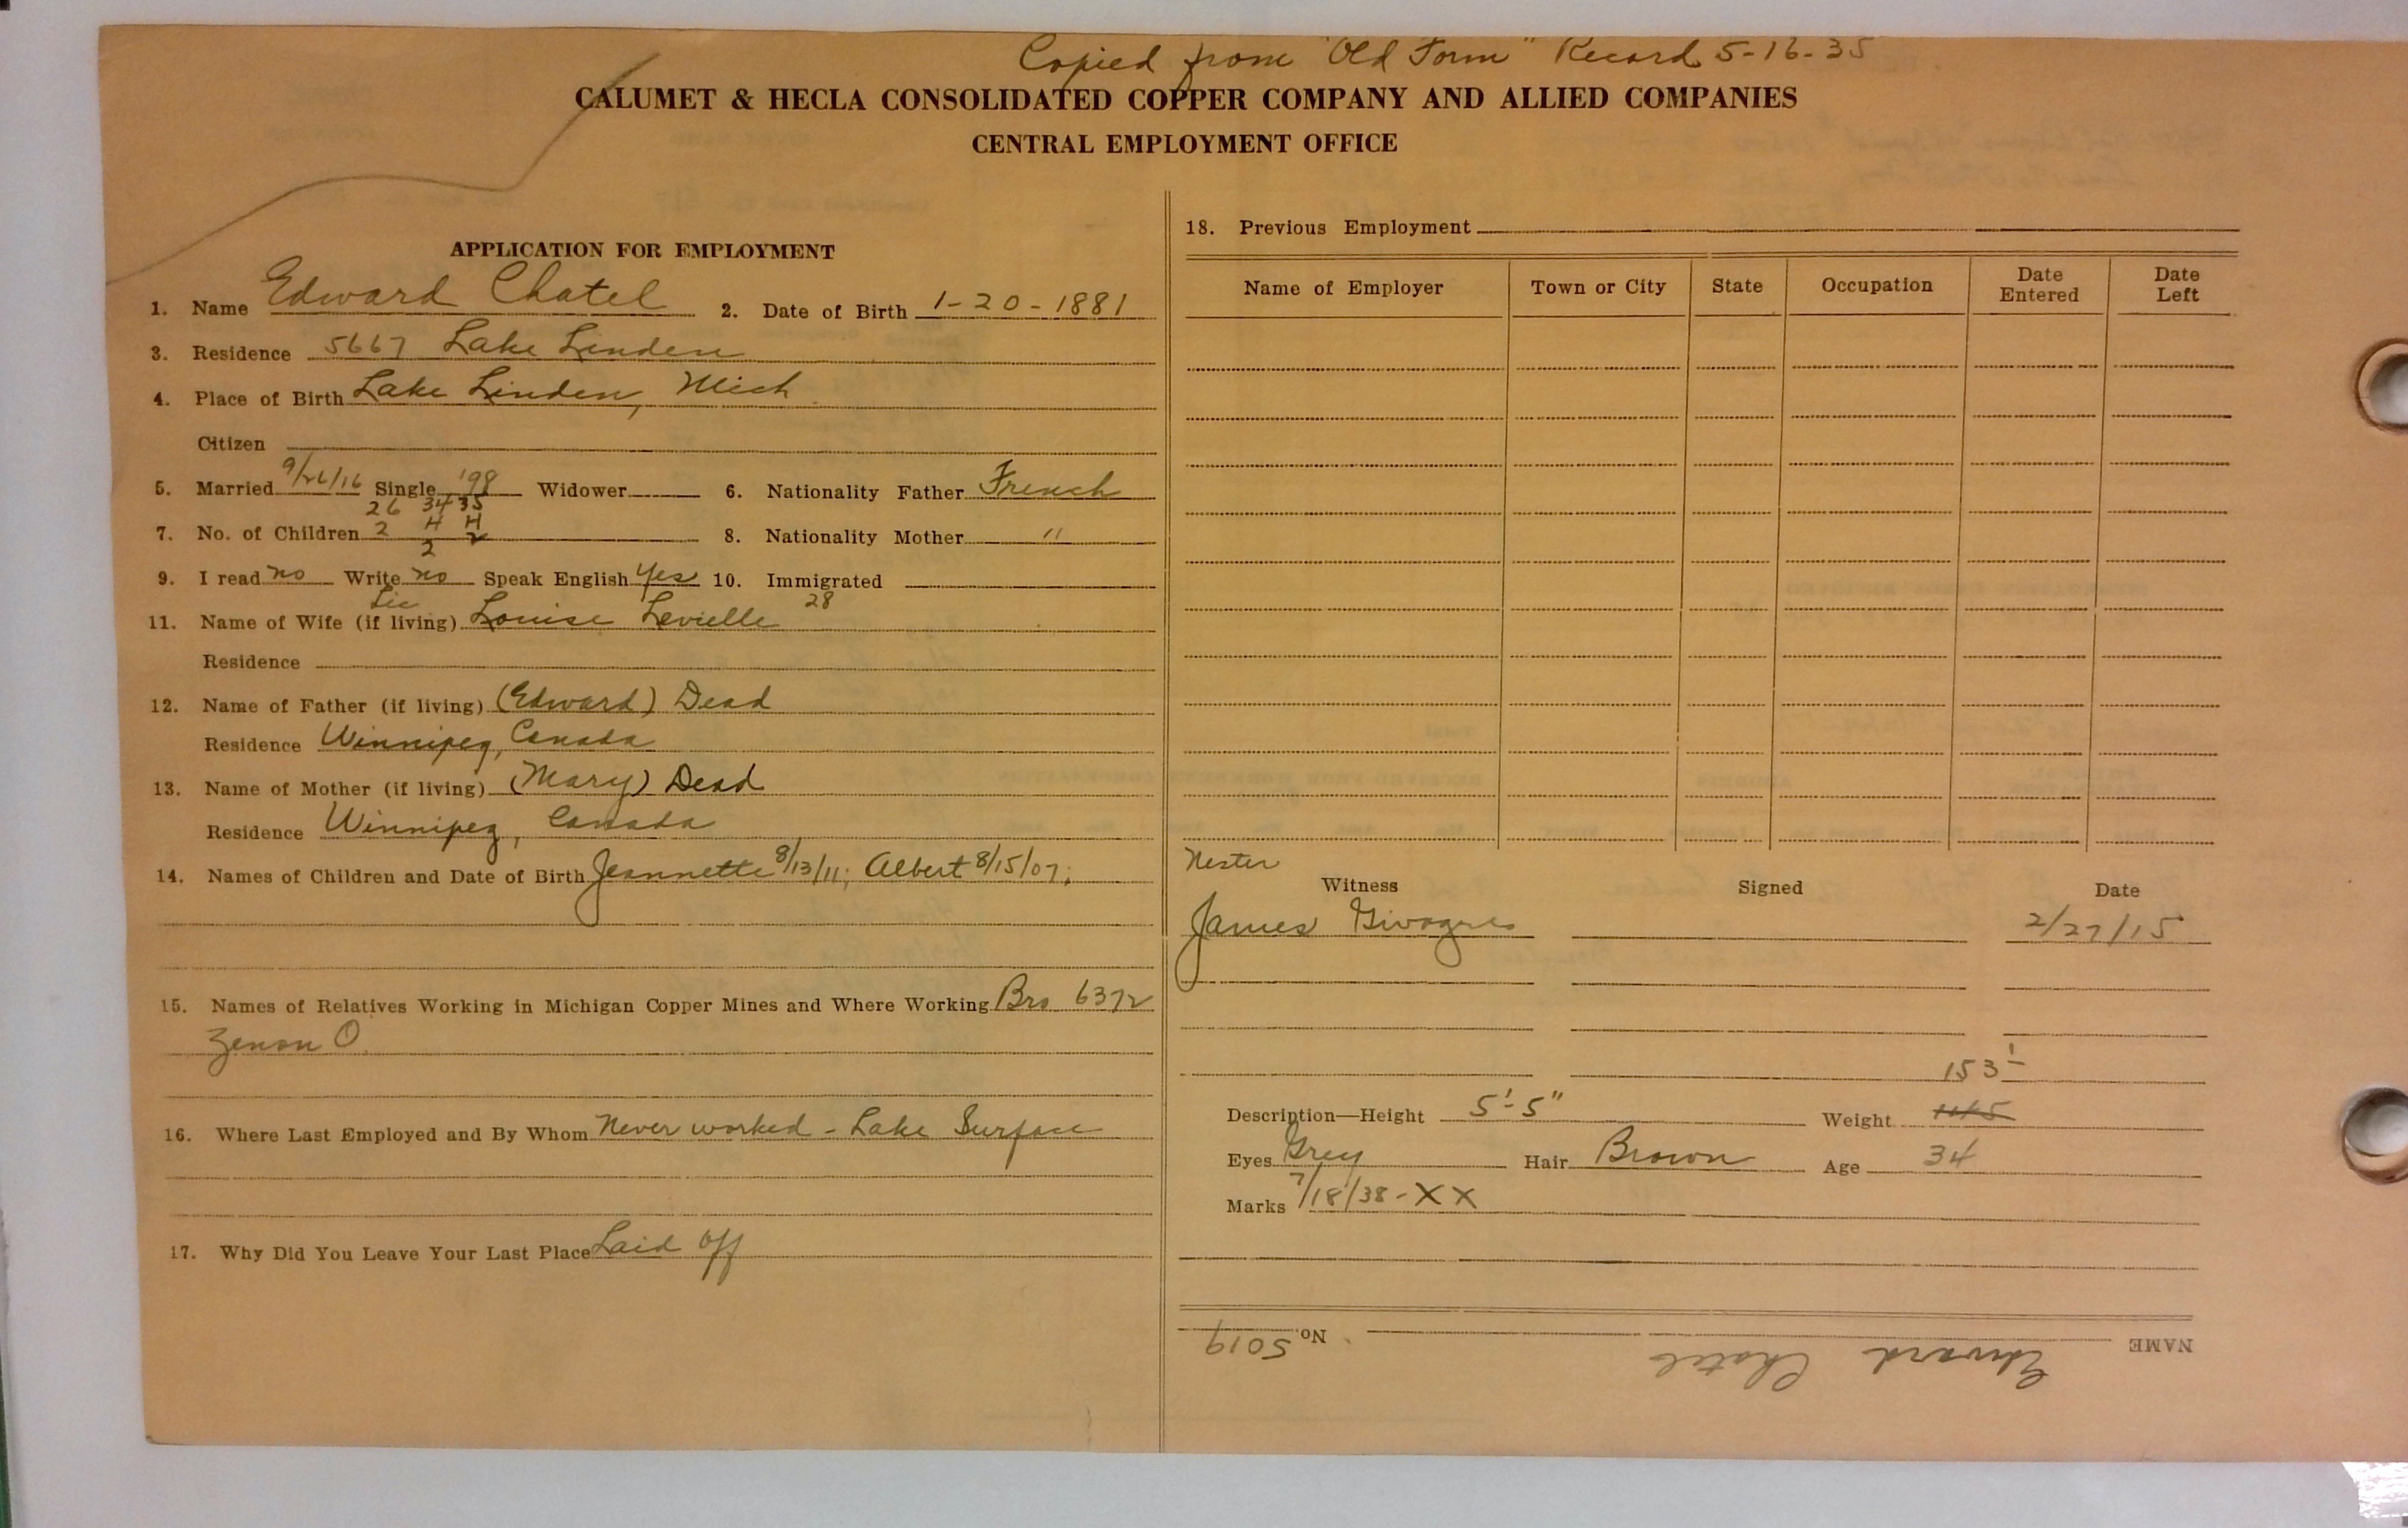 Copied from "Old Form" Record 5-16-35
CALUMET & HECLA CONSOLIDATED COPPER COMPANY AND ALLIED COMPANIES
CENTRAL EMPLOYMENT OFFICE
APPLICATION FOR EMPLOYMENT
1. Name Edward Chatel 2. Date of Birth 1-20-1881
3. Residence 5667 Lake Linden
4. Place of Birth Lake Linden, Mich
Citizen
5. Married 9/26/16 Single '98 Widower 6. Nationality Father French
26 34 35
7. No. of Children 2 4 4 8. Nationality Mother "
2 2
9. I read no Write no Speak English Yes 10. Immigrated
Lic 28
11. Name of Wife (if living) Louise Levielle
Residence
12. Name of Father (if living) (Edward) Dead
Residence Winnipeg, Canada
13. Name of Mother (if living) (Mary) Dead
Residence Winnipeg, Canada
14. Names of Children and Date of Birth Jeannette 8/13/11; Albert 8/15/07;
15. Names of Relatives Working in Michigan Copper Mines and Where Working Bro 6372
Zenon O.
16. Where Last Employed and By Whom Never worked - Lake Surface
17. Why Did You Leave Your Last Place Laid off
18. Previous Employment
Name of Employer Town or City State Occupation Date Entered Date Left
Nester
Witness Signed Date
James 2/27/15
153
Description—Height 5'-5" Weight
Eyes Grey Hair Brown Age 34
Marks 7/18/38-XX
NAME Edward Chatel No. 5019